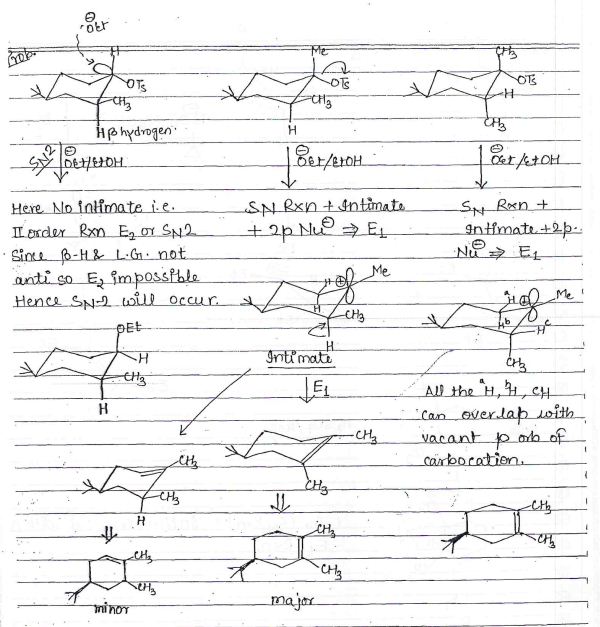 Prob.
⊖OEt
H
OTs
CH3
H β hydrogen.
Me
OTs
CH3
H
CH3
OTs
H
CH3
SN2
⊖OEt/EtOH
⊖OEt/EtOH
⊖OEt/EtOH
Here No intimate i.e.
II order Rxn E2 or SN2
Since β-H & L.G. not
anti so E2 impossible
Hence SN-2 will occur.
SN Rxn + Intimate
+ 2p Nu⊖ ⇒ E1
SN Rxn +
Intimate + 2p.
Nu⊖ ⇒ E1
OEt
H
CH3
H
H ⊕ Me
H
CH3
H
Intimate
E1
aH ⊕ Me
Hb
Hc
CH3
All the aH, bH, cH
can overlap with
vacant p orb of
carbocation.
CH3
CH3
H
CH3
CH3
CH3
CH3
minor
CH3
CH3
major
CH3
CH3